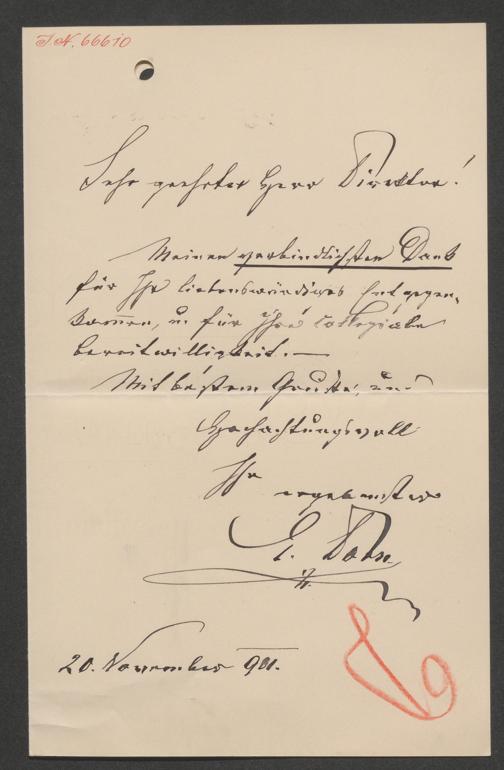 I.N. 66610
Sehr geehrter Herr Direktor!
Meinen verbindlichsten Dank
für Ihr liebenswürdiges Entgegen-
kom̄en, u. für Ihre collegiale
bereitwilligkeit. —
Mit bestem Gruße, und
Hochachtungsvoll
Ihr
ergebenster
E.
20. November 901.